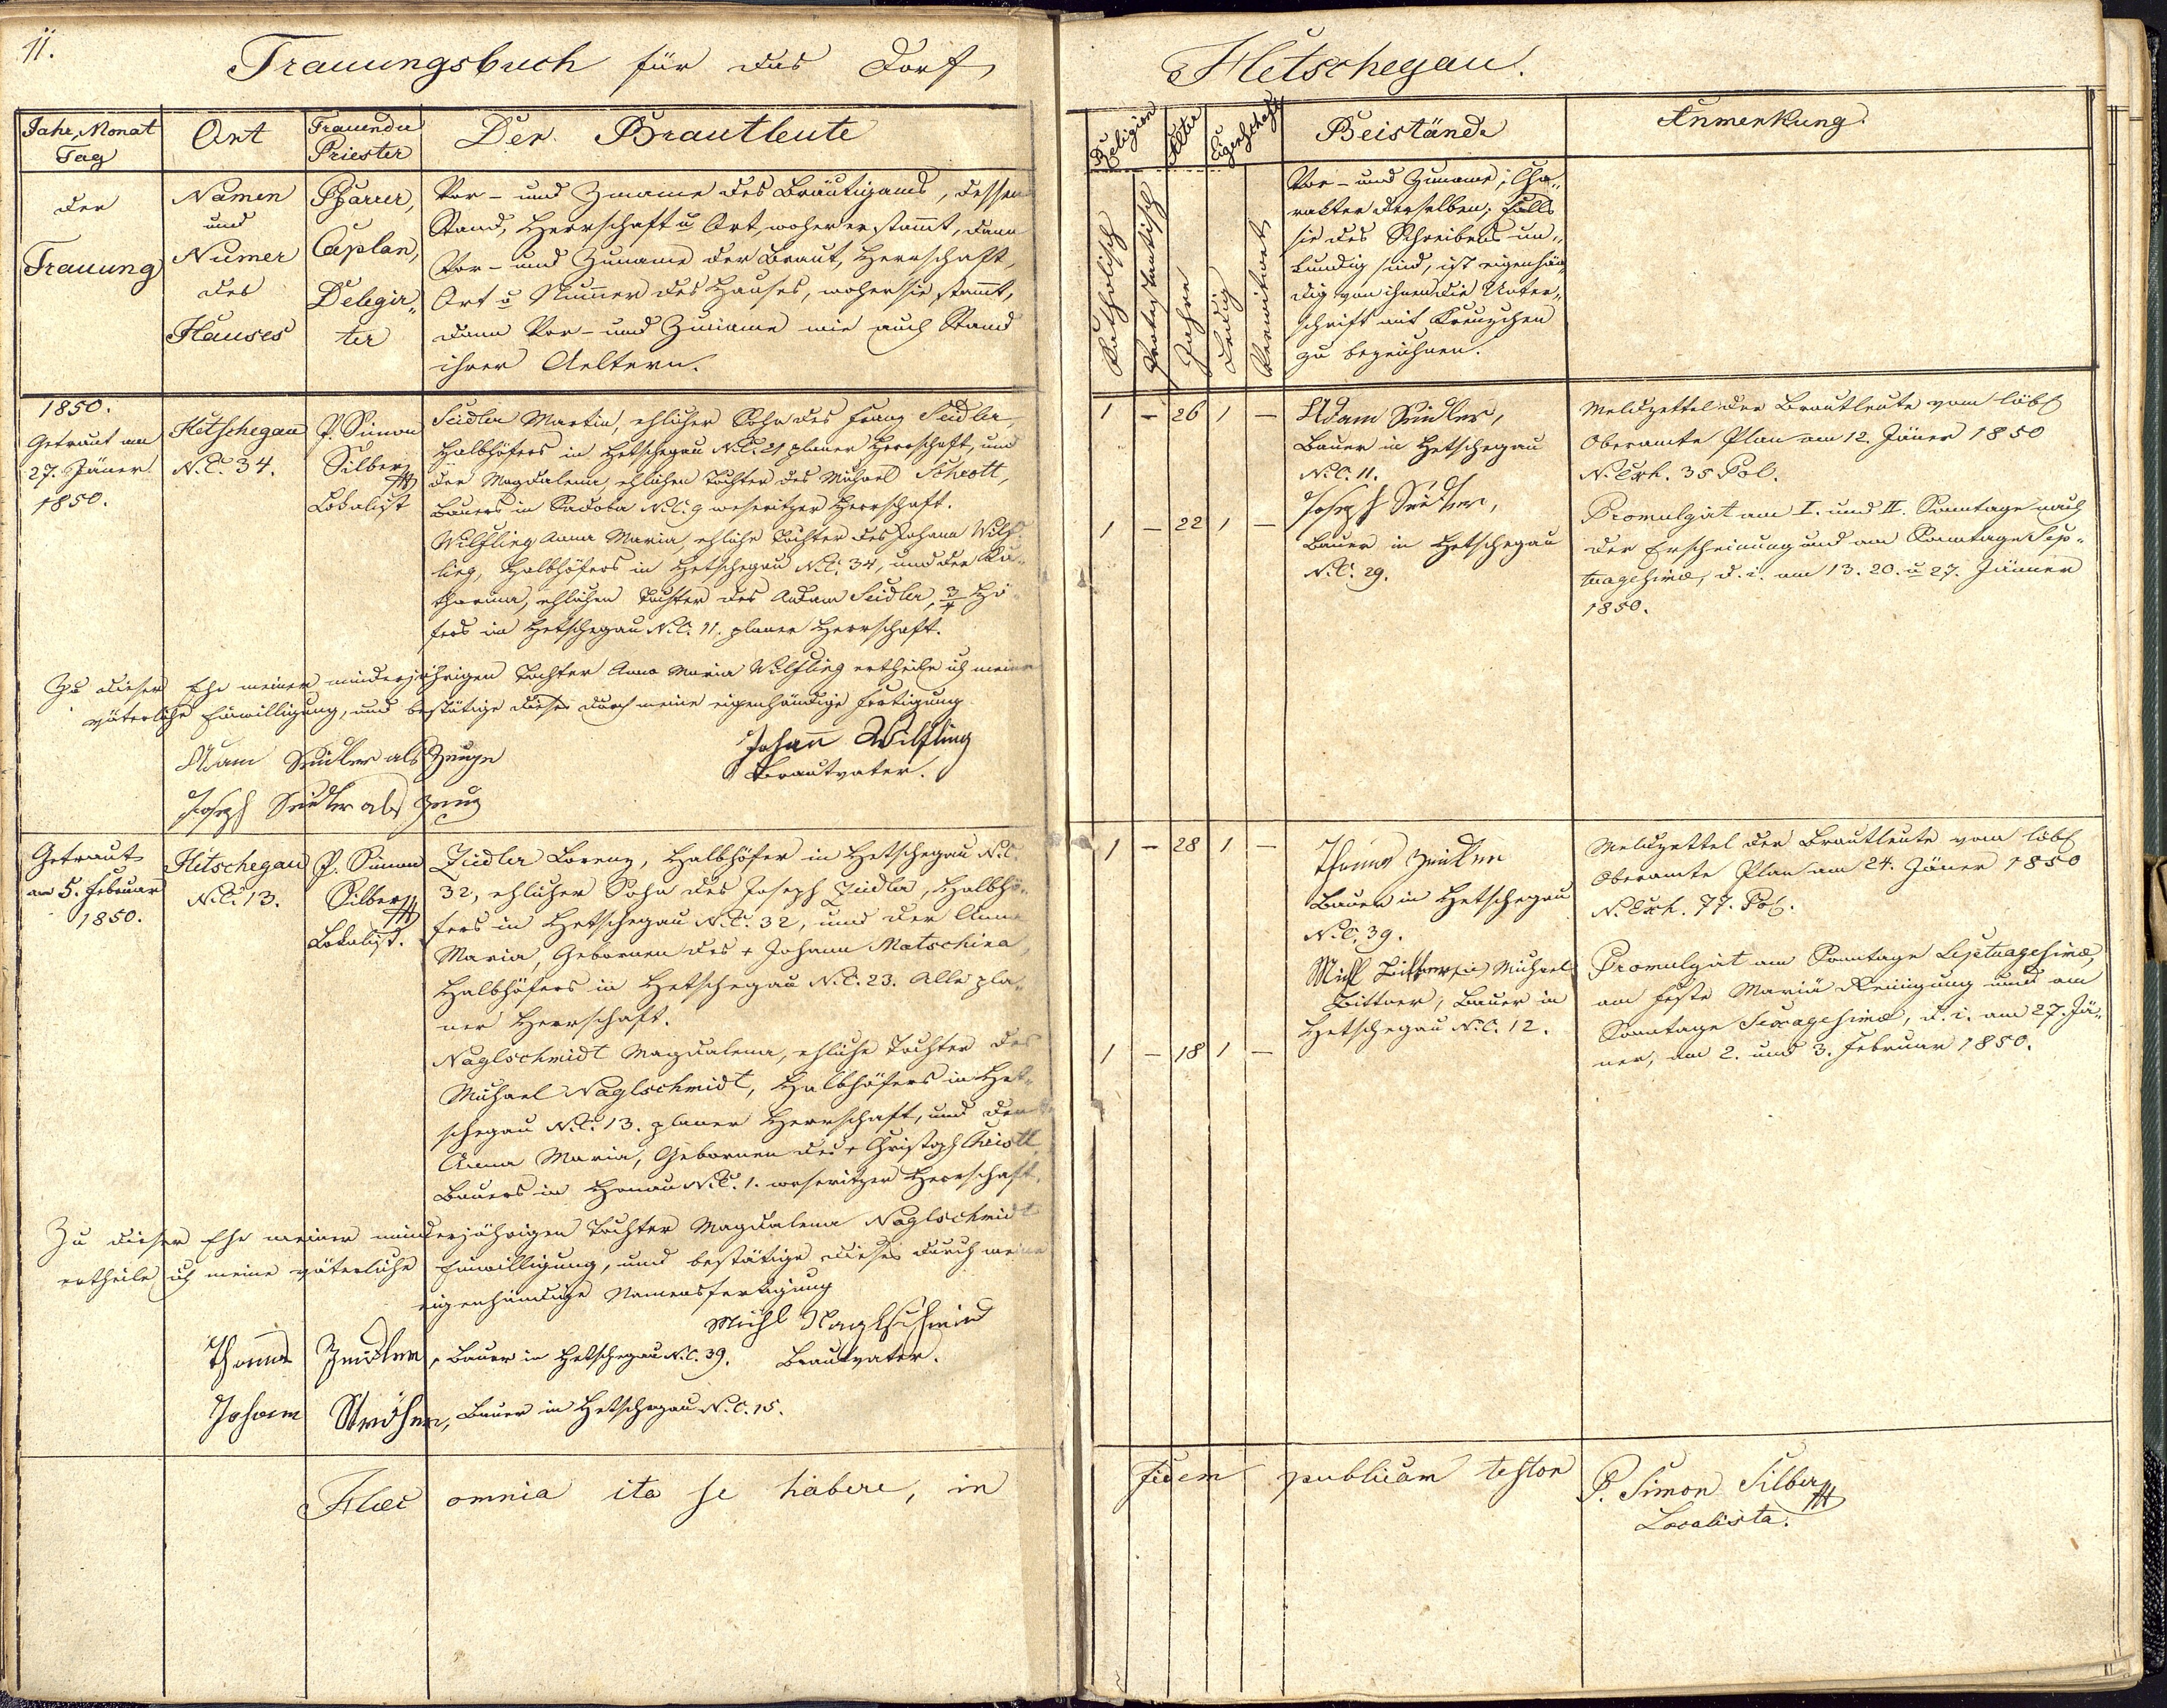 11.
Trauungsbuch für das Dorf
Hetschegau.
Jahr, Monat
Tag
Ort
Trauender
Priester
Der Brautleute
Religion
Alter
Eigenschaft
Beistände
Anmerkung.
der
Trauung
Namen
und
Numer
des
Hauses
Pfarrer,
Caplan,
Delegir„
ter
Vor- und Zuname des Bräutigams, dessen
Stand, Herrschaft u Ort, woher er stammt, dann
Vor- und Zuname der Braut, Herrschaft,
Ort u Numer des Hauses, woher sie stamt,
dann Vor- und Zuname wie auch Stand
ihrer Aeltern.
Katholisch
Protestantisch
Jahre
Ledig
Verwitwet
Vor- und Zuname, Cha„
rakter derselben; falls
sie des Schreibens un„
kundig sind, ist eigenhän„
dig von ihnen die Unter„
schrift mit Kreuzchen
zu bezeichnen.
1850.
Getraut am
27. Jäner
1850.
Hetschegau
N.C. 34.
P. Simon
Silber
Lokalist
Seidler Martin, ehlicher Sohn des Franz Seidler,
Halbhöfers in Hetschegau N.C. 21 planer Herrschaft, und
der Magdalena, ehlichen Tochter des Michael Schrott,
Bauers in Sadoba N.C. 9 weseritzer Herrschaft.
Wilfling Anna Maria, ehliche Tochter des Johann Wilf„
ling, Halbhöfers in Hetschegau N.C. 34, und der Ka„
tharina, ehlichen Tochter des Adam Seidler, 3/4 Hö„
fers in Hetschegau N.C. 11. planer Herrschaft.
1 - 26 1 -
1 - 22 1 -
Adam Seidler,
Bauer in Hetschegau
N.C. 11.
Joseph Seidler,
Bauer in Hetschegau
N.C. 29.
Meldzettel der Brautleute vom löbl
Oberamte Plan am 12. Jäner 1850
N. Exh. 35 Pol.
Promulgirt am I. und II. Sonntage nach
der Erscheinung und am Sonntage Sep„
tuagesimæ, d. i. am 13. 20. u 27. Jänner
1850.
Zu dieser Ehe meiner minderjährigen Tochter Anna Maria Wilfling ertheile ich meine
väterliche Einwilligung, und bestätige dieses durch meine eigenhändige Fertigung
Johann Wilfling
Brautvater.
Adam Seidler als Zeuge
Joseph Seidler als Zeug
Getraut
am 5. Februar
1850.
Hetschegau
N.C. 13.
P. Simon
Silber
Lokalist.
Zeidler Lorenz, Halbhöfer in Hetschegau N.C.
32, ehlicher Sohn des Joseph Zeidler, Halbhö„
fers in Hetschegau N.C. 32, und der Anna
Maria, Gebornen des + Johann Matschina,
Halbhöfers in Hetschegau N.C. 23. Alle pla„
ner Herrschaft.
Naglschmidt Magdalena, ehliche Tochter des
Michael Naglschmidt, Halbhöfers in Het„
schegau N.C. 13. planer Herrschaft, und der
Anna Maria, Gebornen des + Christoph Christl,
Bauers in Honau N.C. 1. weseritzer Herrschaft.
1 - 28 1 -
1 - 18 1 -
Thomas Zeidler
Bauer in Hetschegau
N.C. 39.
Michael
Bittner, Bauer in
Hetschegau N.C. 12.
Meldzettel der Brautleute vom löbl
Oberamte Plan am 24. Jäner 1850
N. Exh. 77. Pol.
Promulgirt am Sonntage Septuagesimæ,
am Feste Mariä Reinigung und am
Sonntage Sexagesimæ, d. i. am 27. Jä„
ner, am 2. und 3. Februar 1850.
Zu dieser Ehe meiner minderjährigen Tochter Magdalena Naglschmidt
ertheile ich meine väterliche Einwilligung, und bestätige dieses durch meine
eigenhändige Namensfertigung
Michl Naglschmid
Brautvater.
Thomas Zeidler, Bauer in Hetschegau N.C. 39.
Johann Ströher, Bauer in Hetschegau N.C. 15.
Hæc omnia ita se habere, in
fidem publicam testor
P. Simon Silber
Localista.